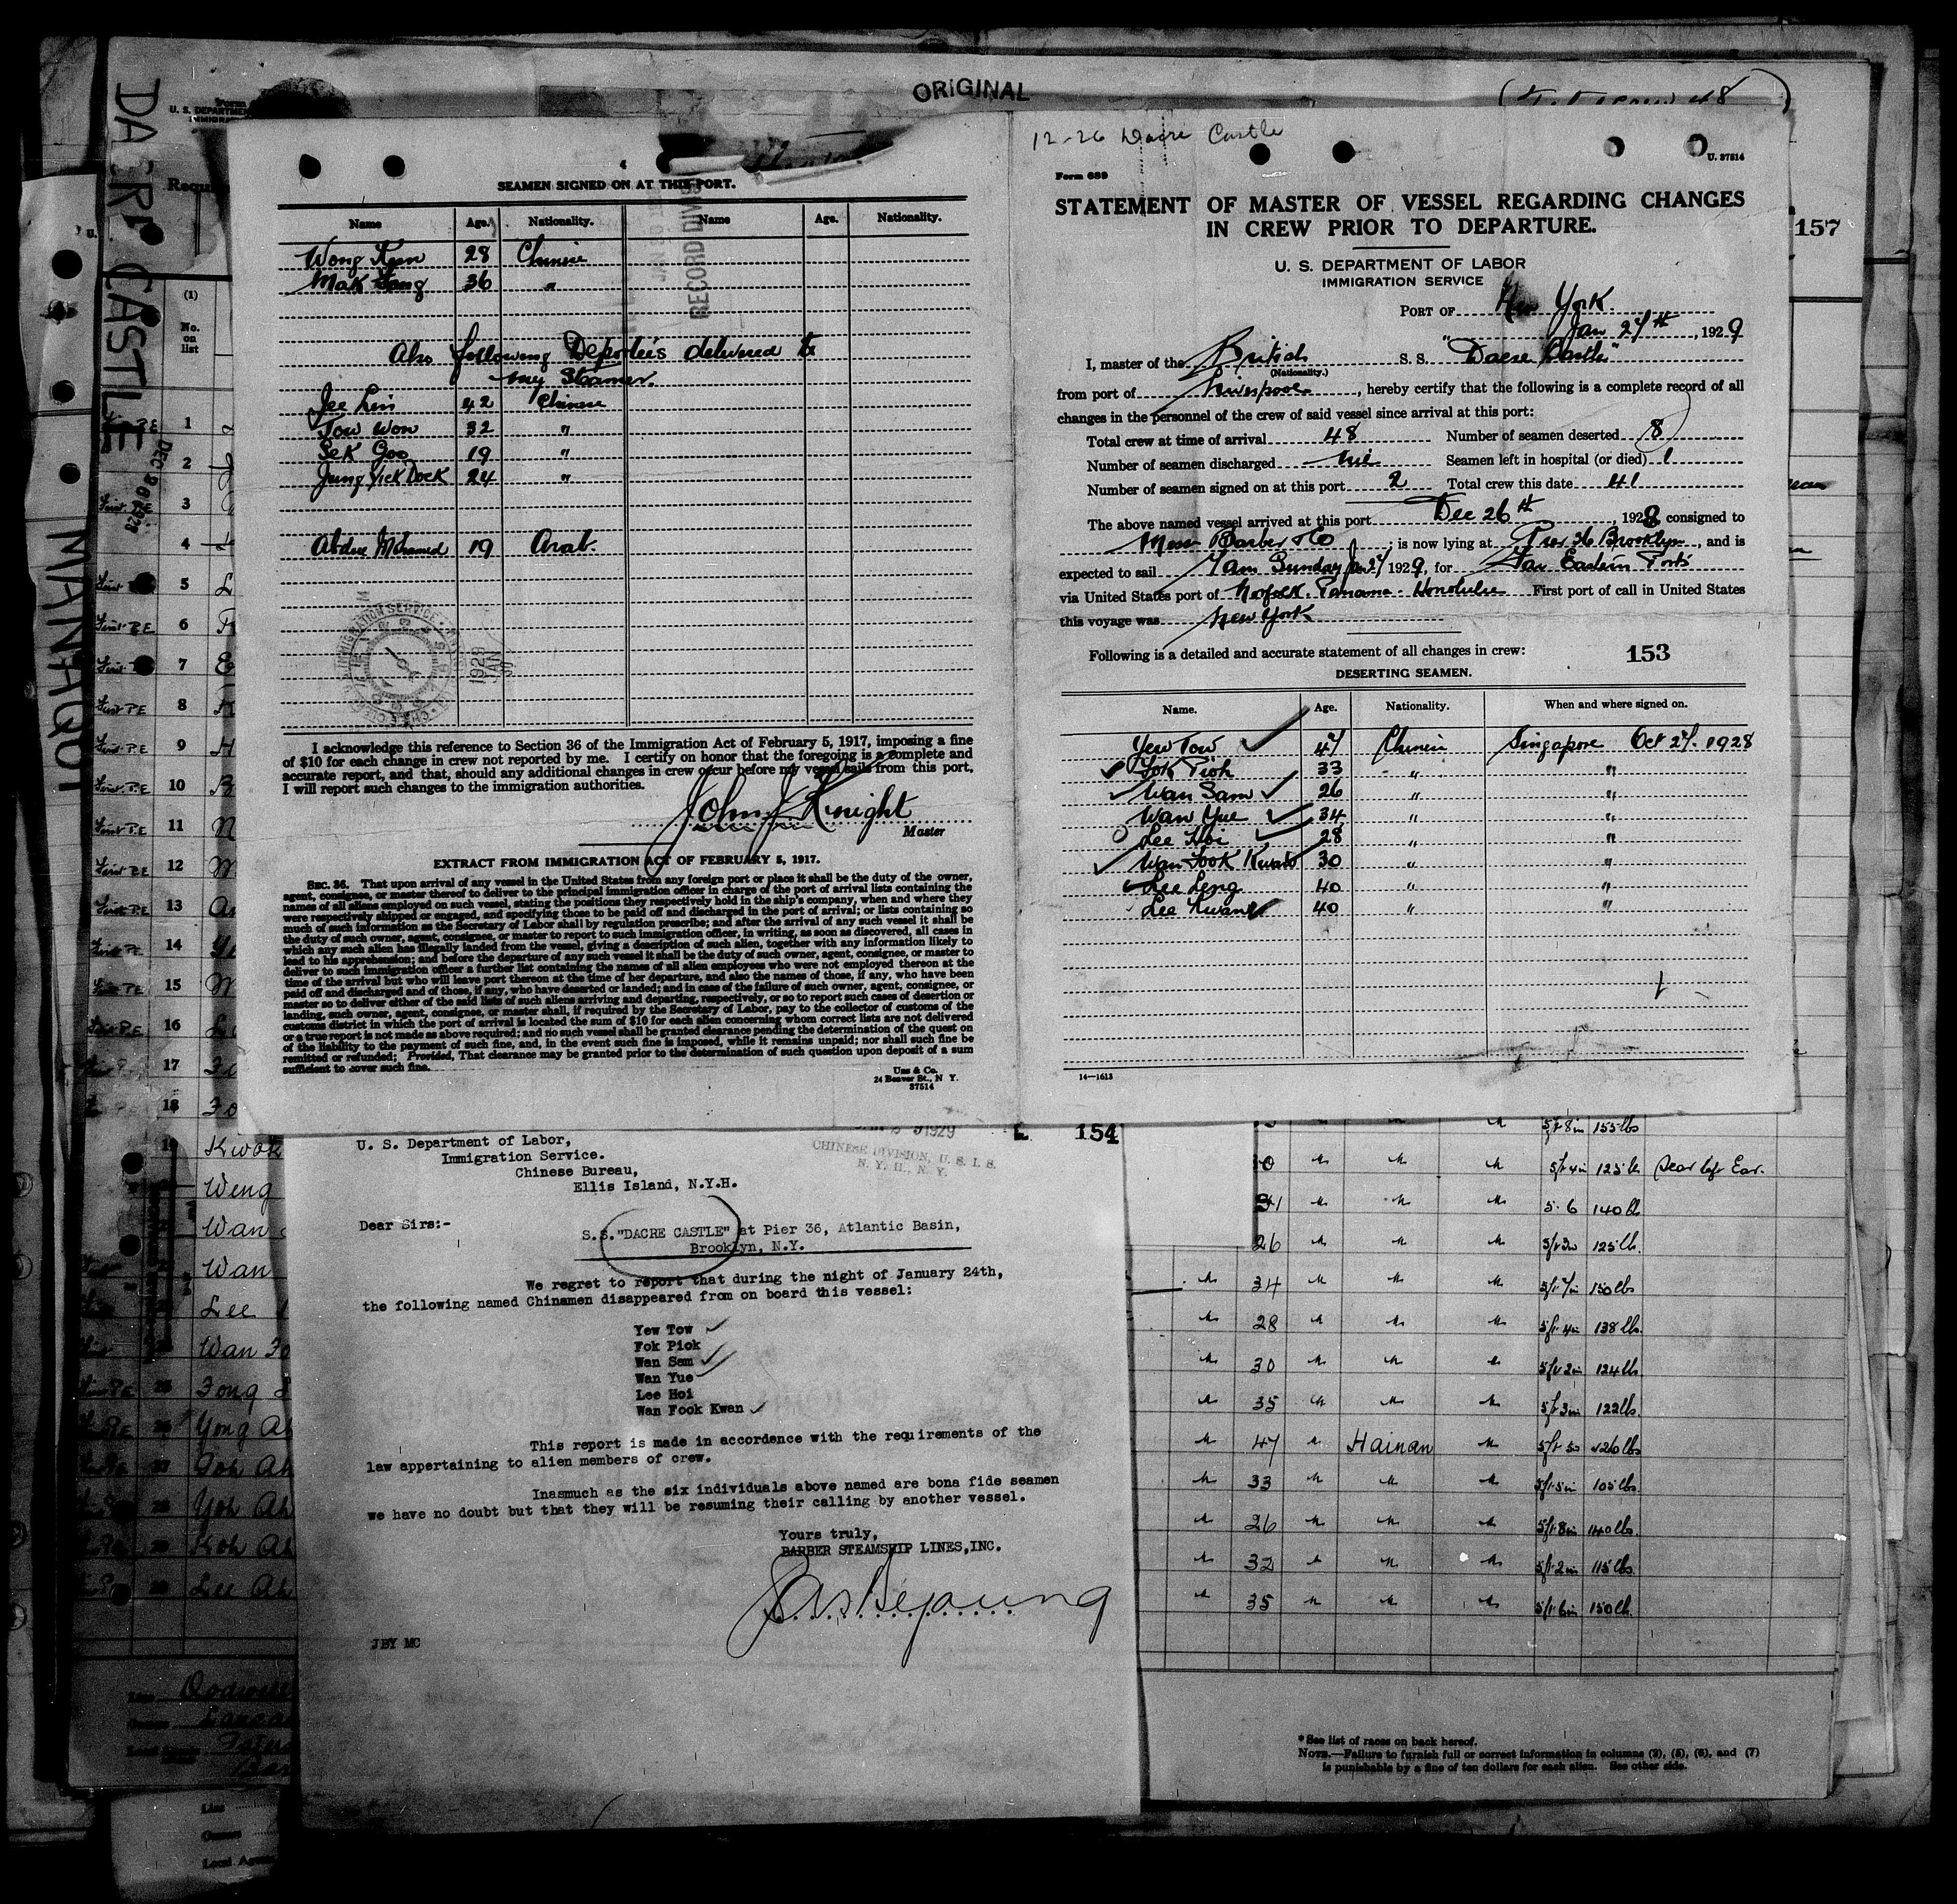 ORIGINAL
DACRE CASTLE
DEC 26 1928
MANAQUI
157
4
SEAMEN SIGNED ON AT THIS PORT.
Name Age. Nationality. Name Age. Nationality.
Wong Kum 28 Chinese
Mak Fong 36 "
Also following Deportees delivered to
my Steamer.
Jee Lin 42 Chinese
Tow Won 32 "
Sek Goo 19 "
Jung Yick Dock 24 "
Abdul Mohamed 19 Arab.
RECORD DIVIS
IMMIGRATION SERVICE
I acknowledge this reference to Section 36 of the Immigration Act of February 5, 1917, imposing a fine
of $10 for each change in crew not reported by me. I certify on honor that the foregoing is a complete and
accurate report, and that, should any additional changes in crew occur before my vessel sails from this port,
I will report such changes to the immigration authorities.
John J Knight
Master
EXTRACT FROM IMMIGRATION ACT OF FEBRUARY 5, 1917.
SEC. 36. That upon arrival of any vessel in the United States from any foreign port or place it shall be the duty of the owner,
agent, consignee, or master thereof to deliver to the principal immigration officer in charge of the port of arrival lists containing the
names of all aliens employed on such vessel, stating the positions they respectively hold in the ship's company, when and where they
were respectively shipped or engaged, and specifying those to be paid off and discharged in the port of arrival; or lists containing so
much of such information as the Secretary of Labor shall by regulation prescribe; and after the arrival of any such vessel it shall be
the duty of such owner, agent, consignee, or master to report to such immigration officer, in writing, as soon as discovered, all cases in
which any such alien has illegally landed from the vessel, giving a description of such alien, together with any information likely to
lead to his apprehension; and before the departure of any such vessel it shall be the duty of such owner, agent, consignee, or master to
deliver to such immigration officer a further list containing the names of all alien employees who were not employed thereon at the
time of the arrival but who will leave port thereon at the time of her departure, and also the names of those, if any, who have been
paid off and discharged and of those, if any, who have deserted or landed; and in case of the failure of such owner, agent, consignee, or
master so to deliver either of the said lists of such aliens arriving and departing, respectively, or so to report such cases of desertion or
landing, such owner, agent, consignee, or master shall, if required by the Secretary of Labor, pay to the collector of customs of the
customs district in which the port of arrival is located the sum of $10 for each alien concerning whom correct lists are not delivered
or a true report is not made as above required; and no such vessel shall be granted clearance pending the determination of the quest on
of the liability to the payment of such fine, and, in the event such fine is imposed, while it remains unpaid; nor shall such fine be
remitted or refunded; Provided, That clearance may be granted prior to the determination of such question upon deposit of a sum
sufficient to cover such fine.
Unz & Co.
24 Beaver St., N Y.
37514
12-26 Dacre Castle
U. 37514
Form 689
STATEMENT OF MASTER OF VESSEL REGARDING CHANGES
IN CREW PRIOR TO DEPARTURE.
U. S. DEPARTMENT OF LABOR
IMMIGRATION SERVICE
PORT OF New York.
Jan 27th, 1929
I, master of the British S. S. "Dacre Castle"
(Nationality.)
from port of Liverpool, hereby certify that the following is a complete record of all
changes in the personnel of the crew of said vessel since arrival at this port:
Total crew at time of arrival 48 Number of seamen deserted 8
Number of seamen discharged nil Seamen left in hospital (or died) 1
Number of seamen signed on at this port 2 Total crew this date 41
The above named vessel arrived at this port Dec 26th, 1928 consigned to
Messrs Barber & Co; is now lying at Pier 36 Brooklyn, and is
expected to sail 7am Sunday Jan 27 1929, for Far Eastern Ports
via United States port of Norfolk. Panama. Honolulu First port of call in United States
this voyage was New York
Following is a detailed and accurate statement of all changes in crew: 153
DESERTING SEAMEN.
Name. Age. Nationality. When and where signed on.
Yew Tow 47 Chinese Singapore Oct 27. 1928
Fok Piok 33 " "
Wan Sam 26 " "
Wan Yue 34 " "
Lee Hoi 28 " "
Wan Fook Kwan 30 " "
Lee Leng 40 " "
Lee Kwan 40 " "
14—1613
154
CHINESE DIVISION, U. S. I. S.
N. Y. H., N. Y.
U. S. Department of Labor,
Immigration Service.
Chinese Bureau,
Ellis Island, N.Y.H.
Dear Sirs:-
S.S."DACRE CASTLE" at Pier 36, Atlantic Basin,
Brooklyn, N.Y.
We regret to report that during the night of January 24th,
the following named Chinamen disappeared from on board this vessel:
Yew Tow
Fok Piok
Wan Sam
Wan Yue
Lee Hoi
Wan Fook Kwan
This report is made in accordance with the requirements of the
law appertaining to alien members of crew.
Inasmuch as the six individuals above named are bona fide seamen
we have no doubt but that they will be resuming their calling by another vessel.
Yours truly,
BARBER STEAMSHIP LINES,INC.
JBY MC
(1)
No.
on
list
1
2
3
4
5
6
7
8
9
10
11
12
13
14
15
16
17
18
19 Kwok
Weng
Wan
Wan
Lee
Wan Fo
25 Fong
26 Yong Ah
27 Goh Ah
28 Yoh Ah
29 Koh Ah
30 Lee Ah
5ft 8in 155lbs
5ft 4in 125lbs Scar left Ear.
5. 6 140lb
26 5ft 3in 125lb.
34 5ft 7in 150lbs
28 5ft 4in 138lbs.
30 5ft 2in 124lbs.
35 5ft 3in 122lbs.
47 Hainan 5ft 5in 126lbs
33 5ft 5in 105lbs.
26 5ft 8in 140lbs.
32 5ft 2in 115lbs.
35 5ft 6in 150lb.
* See list of races on back hereof.
NOTE.—Failure to furnish full or correct information in columns (2), (5), (6), and (7)
is punishable by a fine of ten dollars for each alien. See other side.